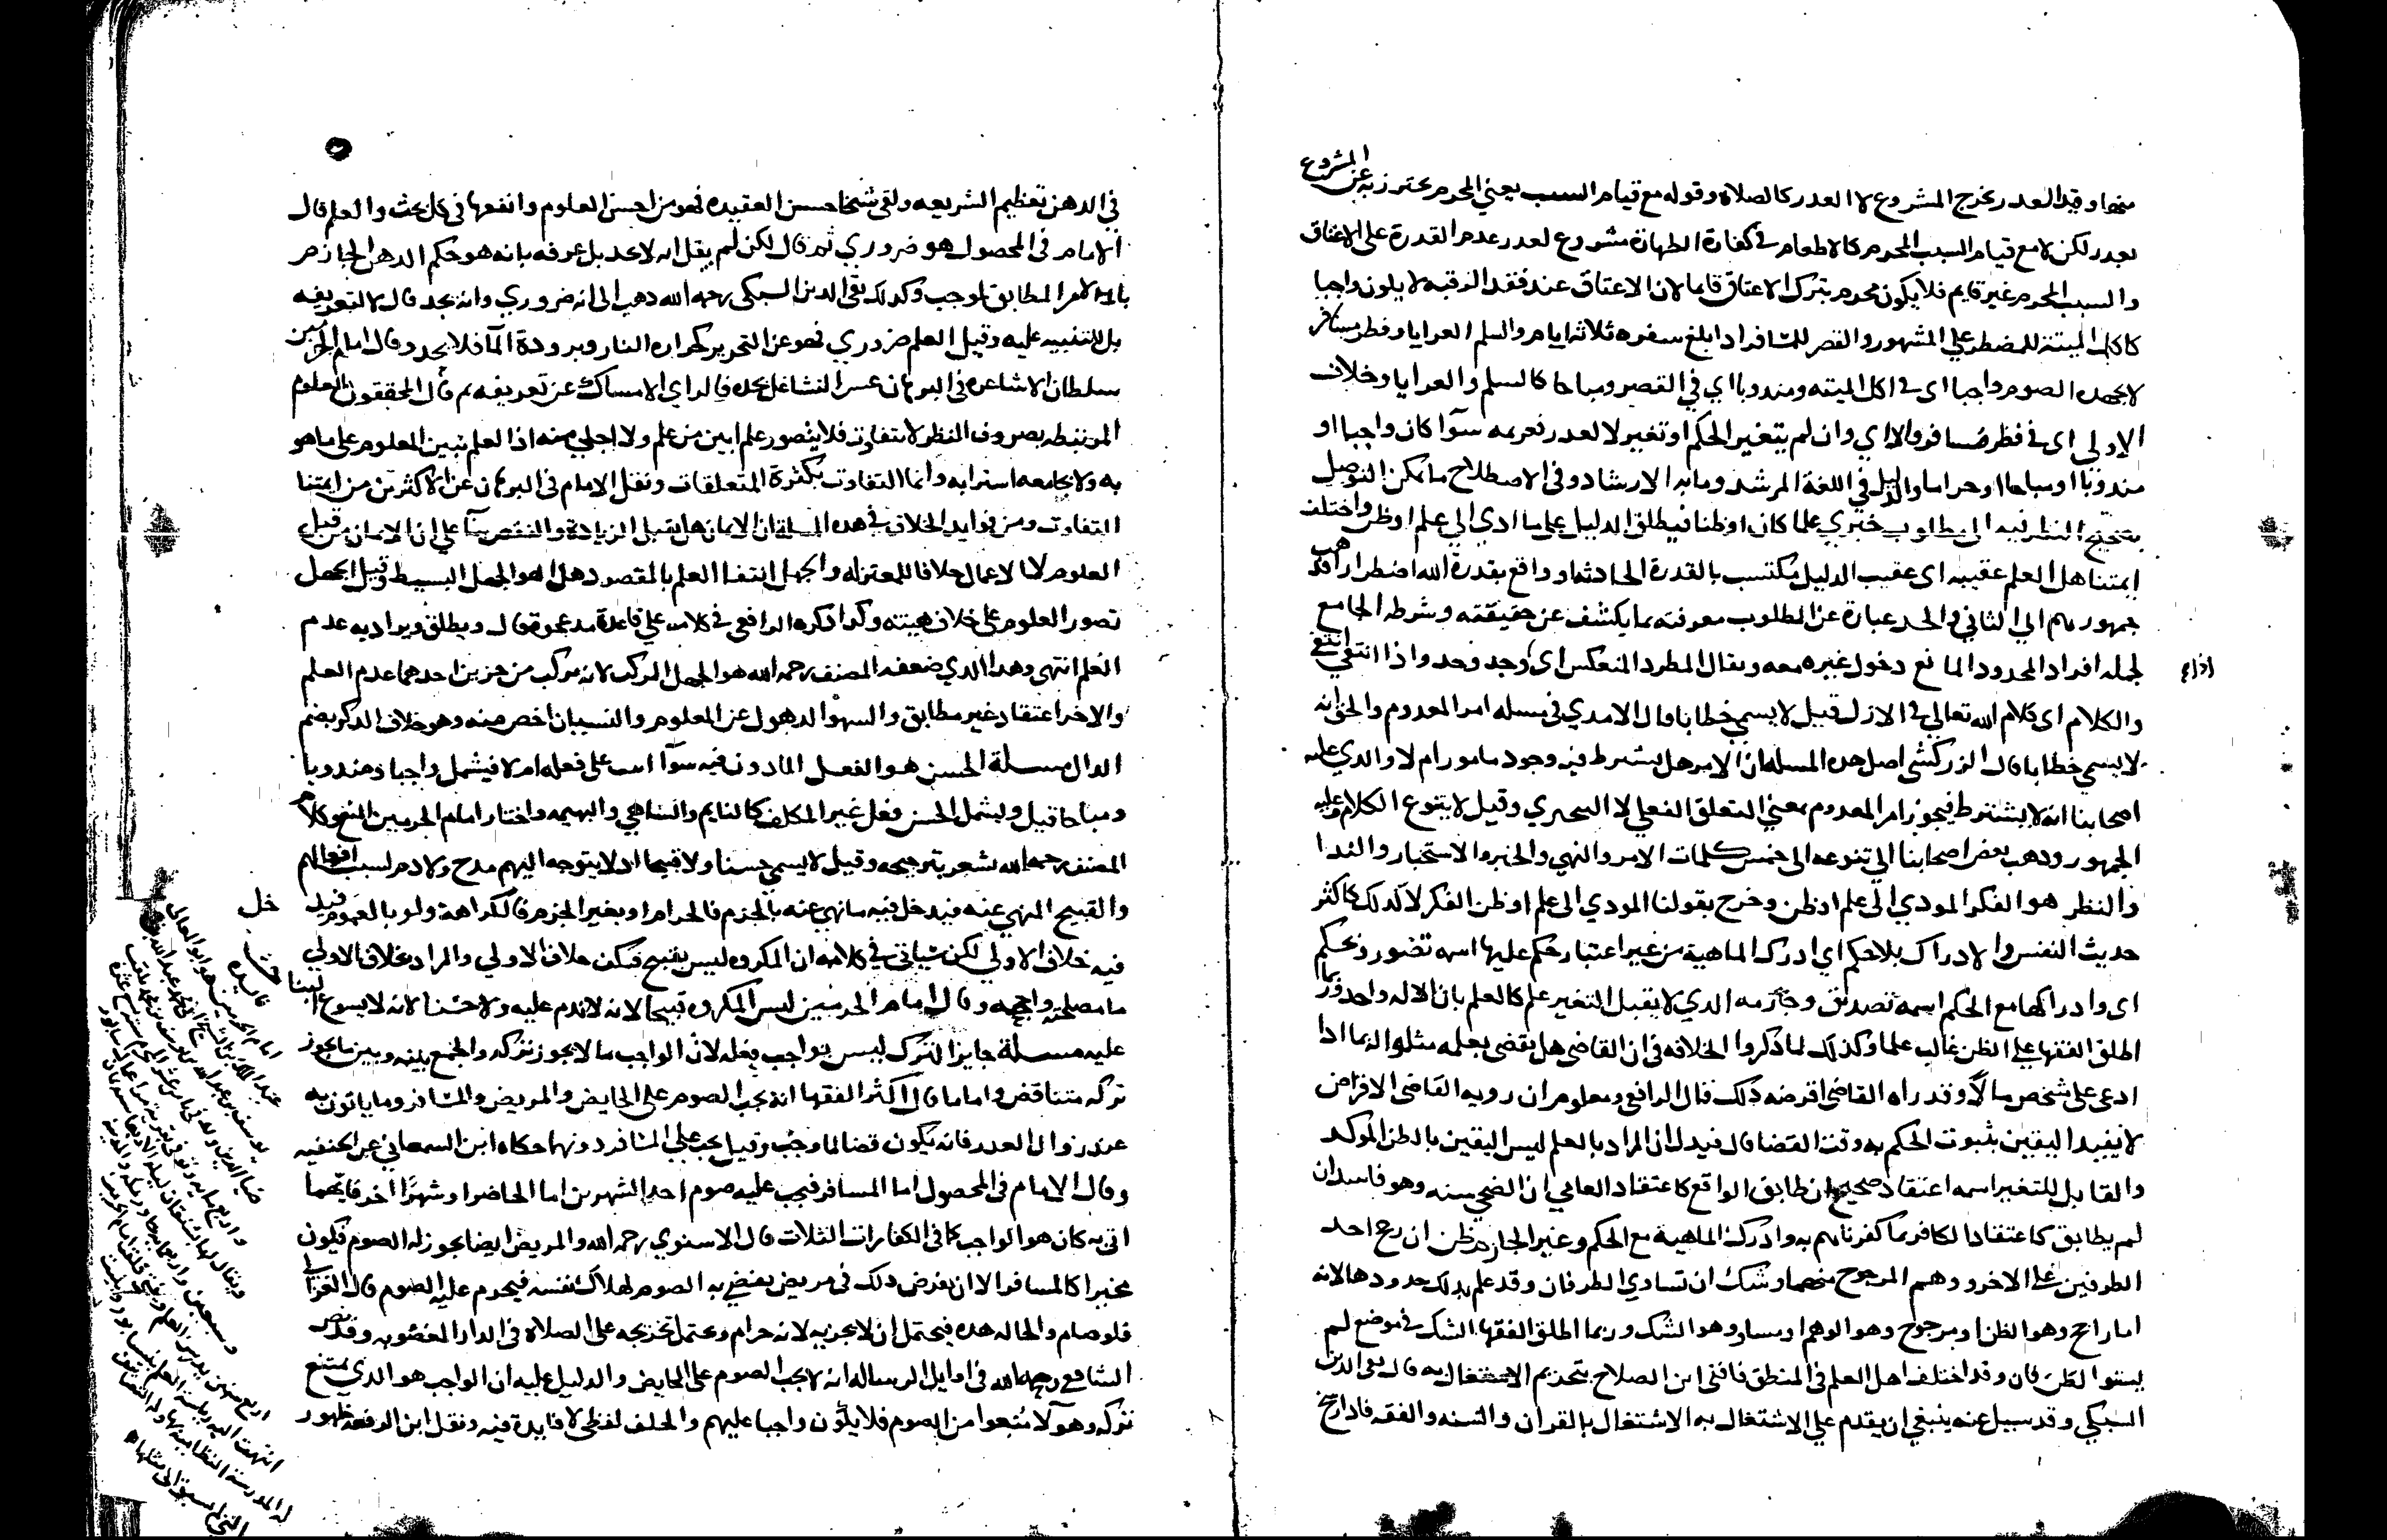 منها وقيد العدر يخرج المشروع لا العدر كالصلاه وقوله مع قيام السبب يعني المحرم يحترز به عن المشروع
بعدر لكن لا مع قيام السبب المحرم كالاطعام في كفارة الظهار فانه مشروع لعدر عدم القدرة على الاعتاق
والسبب المحرم غير قايم فلا يكون محرم بترك الاعتاق قايما لان الاعتاق عند فقد الرقبه لا يكون واجبا
كاكل الميتة للمضطر على المشهور والقصر للمسافر ادا بلغ سفره ثلاثه ايام والسلم العرايا وفطر مسافر
لا يجهده الصوم واجبا اى في اكل الميته ومندوبا اي في القصر ومباحا كالسلم والعرايا وخلاف
الاولى اى في فطر مسافر والا اي وان لم يتغير الحكم او تغير لا لعدر فعزيمه سوآ كان واجبا او
مندوبا او مباحا او حراما والدليل في اللغة المرشد وما به الارشاد وفى الاصطلاح ما يمكن التوصل
بصحيح النظر فيه الى مطلوب خبري علما كان او ظنا فيطلق الدليل على ما ادي الى علم او ظن واختلف
ايمتنا هل العلم عقيبه اى عقيب الدليل مكتسب بالقدرة الحادثه او واقع بقدرة الله اضطرارا فدهب
جمهورهم الى الثاني والحد عبارة عن المطلوب معرفته بما يكشف عن حقيقته وشرطه الجامع
لجمله افراد المحدود المانع دخول غيره معه ويقال المطرد المنعكس اى وجد وجد واذا انتفى انتفى
اذا
والكلام اى كلام الله تعالى في الازل قيل لا يسمى خطابا قال الامدي في مسله امر المعدوم والحق انه
لا يسمى خطابا قال الزركشى اصل هده المسله ان الامر هل يشترط فيه وجود مامور ام لا والدي عليه
اصحابنا انه لا يشترط فيجوز امر المعدوم بمعني التعلق الفعلي لا التنجيزي وقيل لا يتنوع الكلام وعليه
الجمهور ودهب بعض اصحابنا الى تنوعه الى خمس كلمات الامر والنهي والخبر والاستخبار والندا
والنظر هو الفكر المودي الى علم او ظن وخرج بقولنا المودي الى علم او ظن الفكر لا كدلك كاكثر
حديث النفس والادراك بلا حكم اي ادرك الماهية من غير اعتبار حكم عليها اسمه تصور وبحكم
اى وادراكها مع الحكم اسمه تصديق وجازمه الدي لا يقبل التغير علم كالعلم بان الاله واحد وربما
اطلق الفقها على الظن غالب علما وكذلك لما ذكروا الخلاف في ان القاضى هل يقضى بعلمه مثلوا له بما ادا
ادعى على شخص مالا وقد راه القاضى اقرضه ذلك قال الرافعى ومعلوم ان رويه القاضى الاقراض
لا تفيد اليقين بثبوت الحكم به وقت القضا قال فيدل ان المراد بالعلم ليس اليقين بل الظن الموكد
والقابل للتغير اسمه اعتقاد صحيح ان طابق الواقع كاعتقاد العامي ان الضحى سنه وهو فاسد ان
لم يطابق كاعتقاد الكافر ما كفرناهم به وادرك الماهية مع الحكم وغير الجازم ظن ان رجح احد
الطرفين على الاخر ووهم المرجوح منهما وشك ان تساوي الطرفان وقد علم بدلك حدودها لانه
اما راجح وهو الظن او مرجوح وهو الوهم او مساو وهو الشك وربما اطلق الفقها الشك في موضع لم
يستو الطرفان وقد اختلف اهل العلم في المنطق فافتى ابن الصلاح بتحريم الاشتغال به قال تقى الدين
السبكي وقد سيل عنه ينبغي ان يقدم علي الاشتغال به الاشتغال بالقران والسنه والفقه فادا رسخ
في الدهن تعظيم الشريعه ولقى شيخا حسن العقيده فهو من احسن العلوم وانفعها في كل بحث والعلم قال
الامام فى المحصول هو ضروري ثم قال لكن لم يقل انه لا يحد بل عرفه بانه هو حكم الدهن الجازم
بالامر المطابق لموجب وكدلك تقى الدين السبكى رحمه الله دهب الى انه ضروري وانه يحد قال لا لتعريفه
بل للتنبيه عليه وقيل العلم ضروري فهو عن التحرير كحراره النار وبرودة المآ فلا يحد وقال امام الحرمين
سلطان الاشاعره فى البرهان عسر التشاغل بحده قال فالراي الامساك عن تعريفه ثم قال المحققون العلوم
المرتبطه بصروف النظر لا تتفاوت فلا يتصور علم ابين من علم ولا اجلى منه اذا العلم تبين المعلوم على ما هو
به ولا يجامعه استرابه وانما التفاوت بكثرة المتعلقات ونقل الامام فى البرهان عن الاكثرين من ايمتنا
التفاوت ومن فوايد الخلاف في هده المسله ان الايمان هل يقبل الزيادة والنقص بنآ على ان الايمان من قبل
العلوم لا الاعمال خلافا للمعتزله والجهل انتفا العلم بالمقصود هدا هو الجهل البسيط وقيل الجهل
تصور العلوم على خلاف هيئته وكدا ذكره الرافعى في كلامه على قاعدة مد عجوة قال ويطلق ويراد به عدم
العلم انتهى وهدا الدي ضعفه المصنف رحمه الله هو الجهل المركب لانه مركب من جزين احدهما عدم العلم
والاخر اعتقاد غير مطابق والسهو الدهول عن المعلوم والنسيان اخص منه وهو خلاف الدكر بضم
الدال مسلة الحسن هو الفعل المادون فيه سوآ اثيب على فعله ام لا فيشمل واجبا ومندوبا
ومباحا قيل ويشمل الحسن فعل غير المكلف كالنايم والساهي والبهيمه واختار امام الحرمين المنع وكلام
المصنف رحمه الله يشعر بترجيحه وقيل لا يسمي حسنا ولا قبيحا اد لا يتوجه اليهم مدح ولا دم لسبب افعالهم
والقبيح المنهي عنه فيدخل فيه ما نهي عنه بالجزم فالحرام او بغير الجزم فالكراهة ولو بالعموم فيدخل
فيه خلاف الاولي لكن سياتى في كلامه ان المكروه ليس بقبيح خلاف الاولي والمراد بخلاف الاولي
ما مصلحته راجحه وقال امام الحرمين ليس المكروه قبيحا لانه لا يدم عليه ولا حسنا لانه لا يسوغ
عليه مسلة جايز الترك ليس بواجب بفعله لان الواجب ما لا يجوز تركه والجمع بينه وبين ما يجوز
تركه متناقض واما ما قال اكثر الفقها انه يجب الصوم على الحايض والمريض والمسافر وما ياتون به
عند زوال العدر فانه يكون قضا لما وجب وقيل يجب على المسافر دونهما حكاه ابن السمعاني عن الحنفيه
وقال الامام فى المحصول اما المسافر فيجب عليه صوم احد الشهرين اما الحاضر او شهرا اخر فايهما
اتى به كان هو الواجب كما فى الكفارات الثلاث قال الاسنوي رحمه الله والمريض ايضا يجوز له الصوم فيكون
مخيرا كالمسافر الا ان يفرض دلك فى مريض يفضى به الصوم لهلاك نفسه فيحرم عليه الصوم قال الغزالي
فلو صام والحاله هده فيحتمل ان لا يجزيه لانه حرام ويحتمل تخريجه على الصلاة فى الدار المغصوبه وقد نص
الشافعي رحمه الله فى اوايل الرساله انه لا يجب الصوم على الحايض والدليل عليه ان الواجب هو الدي يمتنع
تركه وهولآ منعوا من الصوم فلا يكون واجبا عليهم والخلف لفظى لا فايدة فيه ونقل ابن الرفعه ظهور
امام الحرمين هو ابو العالى